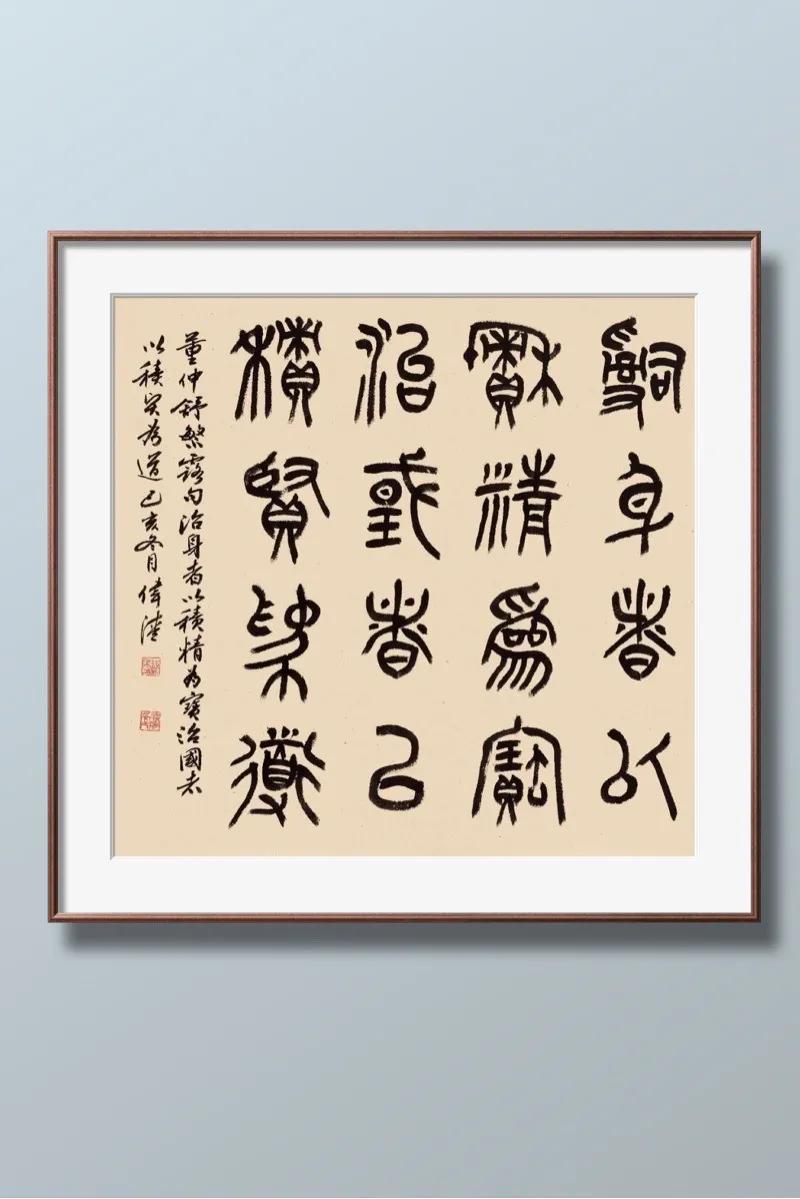 治身者以
積精為寶
治國者以
積賢為道
董仲舒繁露句治身者以積精為寶治國者
以積賢為道己亥冬月偉